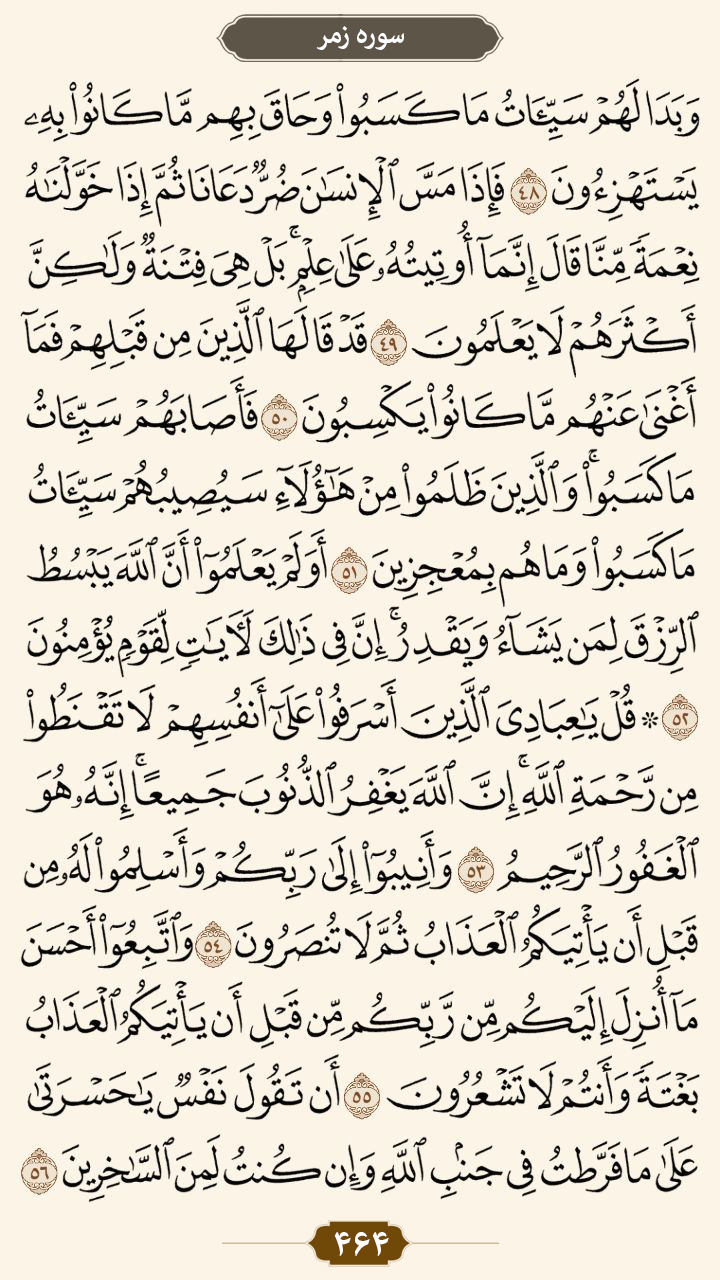 سوره زمر
وَبَدَا لَهُمْ سَيِّـَٔاتُ مَا كَسَبُوا۟ وَحَاقَ بِهِم مَّا كَانُوا۟ بِهِۦ
يَسْتَهْزِءُونَ ٤٨ فَإِذَا مَسَّ ٱلْإِنسَـٰنَ ضُرٌّ دَعَانَا ثُمَّ إِذَا خَوَّلْنَـٰهُ
نِعْمَةً مِّنَّا قَالَ إِنَّمَآ أُوتِيتُهُۥ عَلَىٰ عِلْمٍۭ ۚ بَلْ هِىَ فِتْنَةٌ وَلَـٰكِنَّ
أَكْثَرَهُمْ لَا يَعْلَمُونَ ٤٩ قَدْ قَالَهَا ٱلَّذِينَ مِن قَبْلِهِمْ فَمَآ
أَغْنَىٰ عَنْهُم مَّا كَانُوا۟ يَكْسِبُونَ ٥٠ فَأَصَابَهُمْ سَيِّـَٔاتُ
مَا كَسَبُوا۟ ۚ وَٱلَّذِينَ ظَلَمُوا۟ مِنْ هَـٰٓؤُلَآءِ سَيُصِيبُهُمْ سَيِّـَٔاتُ
مَا كَسَبُوا۟ وَمَا هُم بِمُعْجِزِينَ ٥١ أَوَلَمْ يَعْلَمُوٓا۟ أَنَّ ٱللَّهَ يَبْسُطُ
ٱلرِّزْقَ لِمَن يَشَآءُ وَيَقْدِرُ ۚ إِنَّ فِى ذَٰلِكَ لَـَٔايَـٰتٍ لِّقَوْمٍ يُؤْمِنُونَ
٥٢ * قُلْ يَـٰعِبَادِىَ ٱلَّذِينَ أَسْرَفُوا۟ عَلَىٰٓ أَنفُسِهِمْ لَا تَقْنَطُوا۟
مِن رَّحْمَةِ ٱللَّهِ ۚ إِنَّ ٱللَّهَ يَغْفِرُ ٱلذُّنُوبَ جَمِيعًا ۚ إِنَّهُۥ هُوَ
ٱلْغَفُورُ ٱلرَّحِيمُ ٥٣ وَأَنِيبُوٓا۟ إِلَىٰ رَبِّكُمْ وَأَسْلِمُوا۟ لَهُۥ مِن
قَبْلِ أَن يَأْتِيَكُمُ ٱلْعَذَابُ ثُمَّ لَا تُنصَرُونَ ٥٤ وَٱتَّبِعُوٓا۟ أَحْسَنَ
مَآ أُنزِلَ إِلَيْكُم مِّن رَّبِّكُم مِّن قَبْلِ أَن يَأْتِيَكُمُ ٱلْعَذَابُ
بَغْتَةً وَأَنتُمْ لَا تَشْعُرُونَ ٥٥ أَن تَقُولَ نَفْسٌ يَـٰحَسْرَتَىٰ
عَلَىٰ مَا فَرَّطتُ فِى جَنۢبِ ٱللَّهِ وَإِن كُنتُ لَمِنَ ٱلسَّـٰخِرِينَ ٥٦
۴۶۴